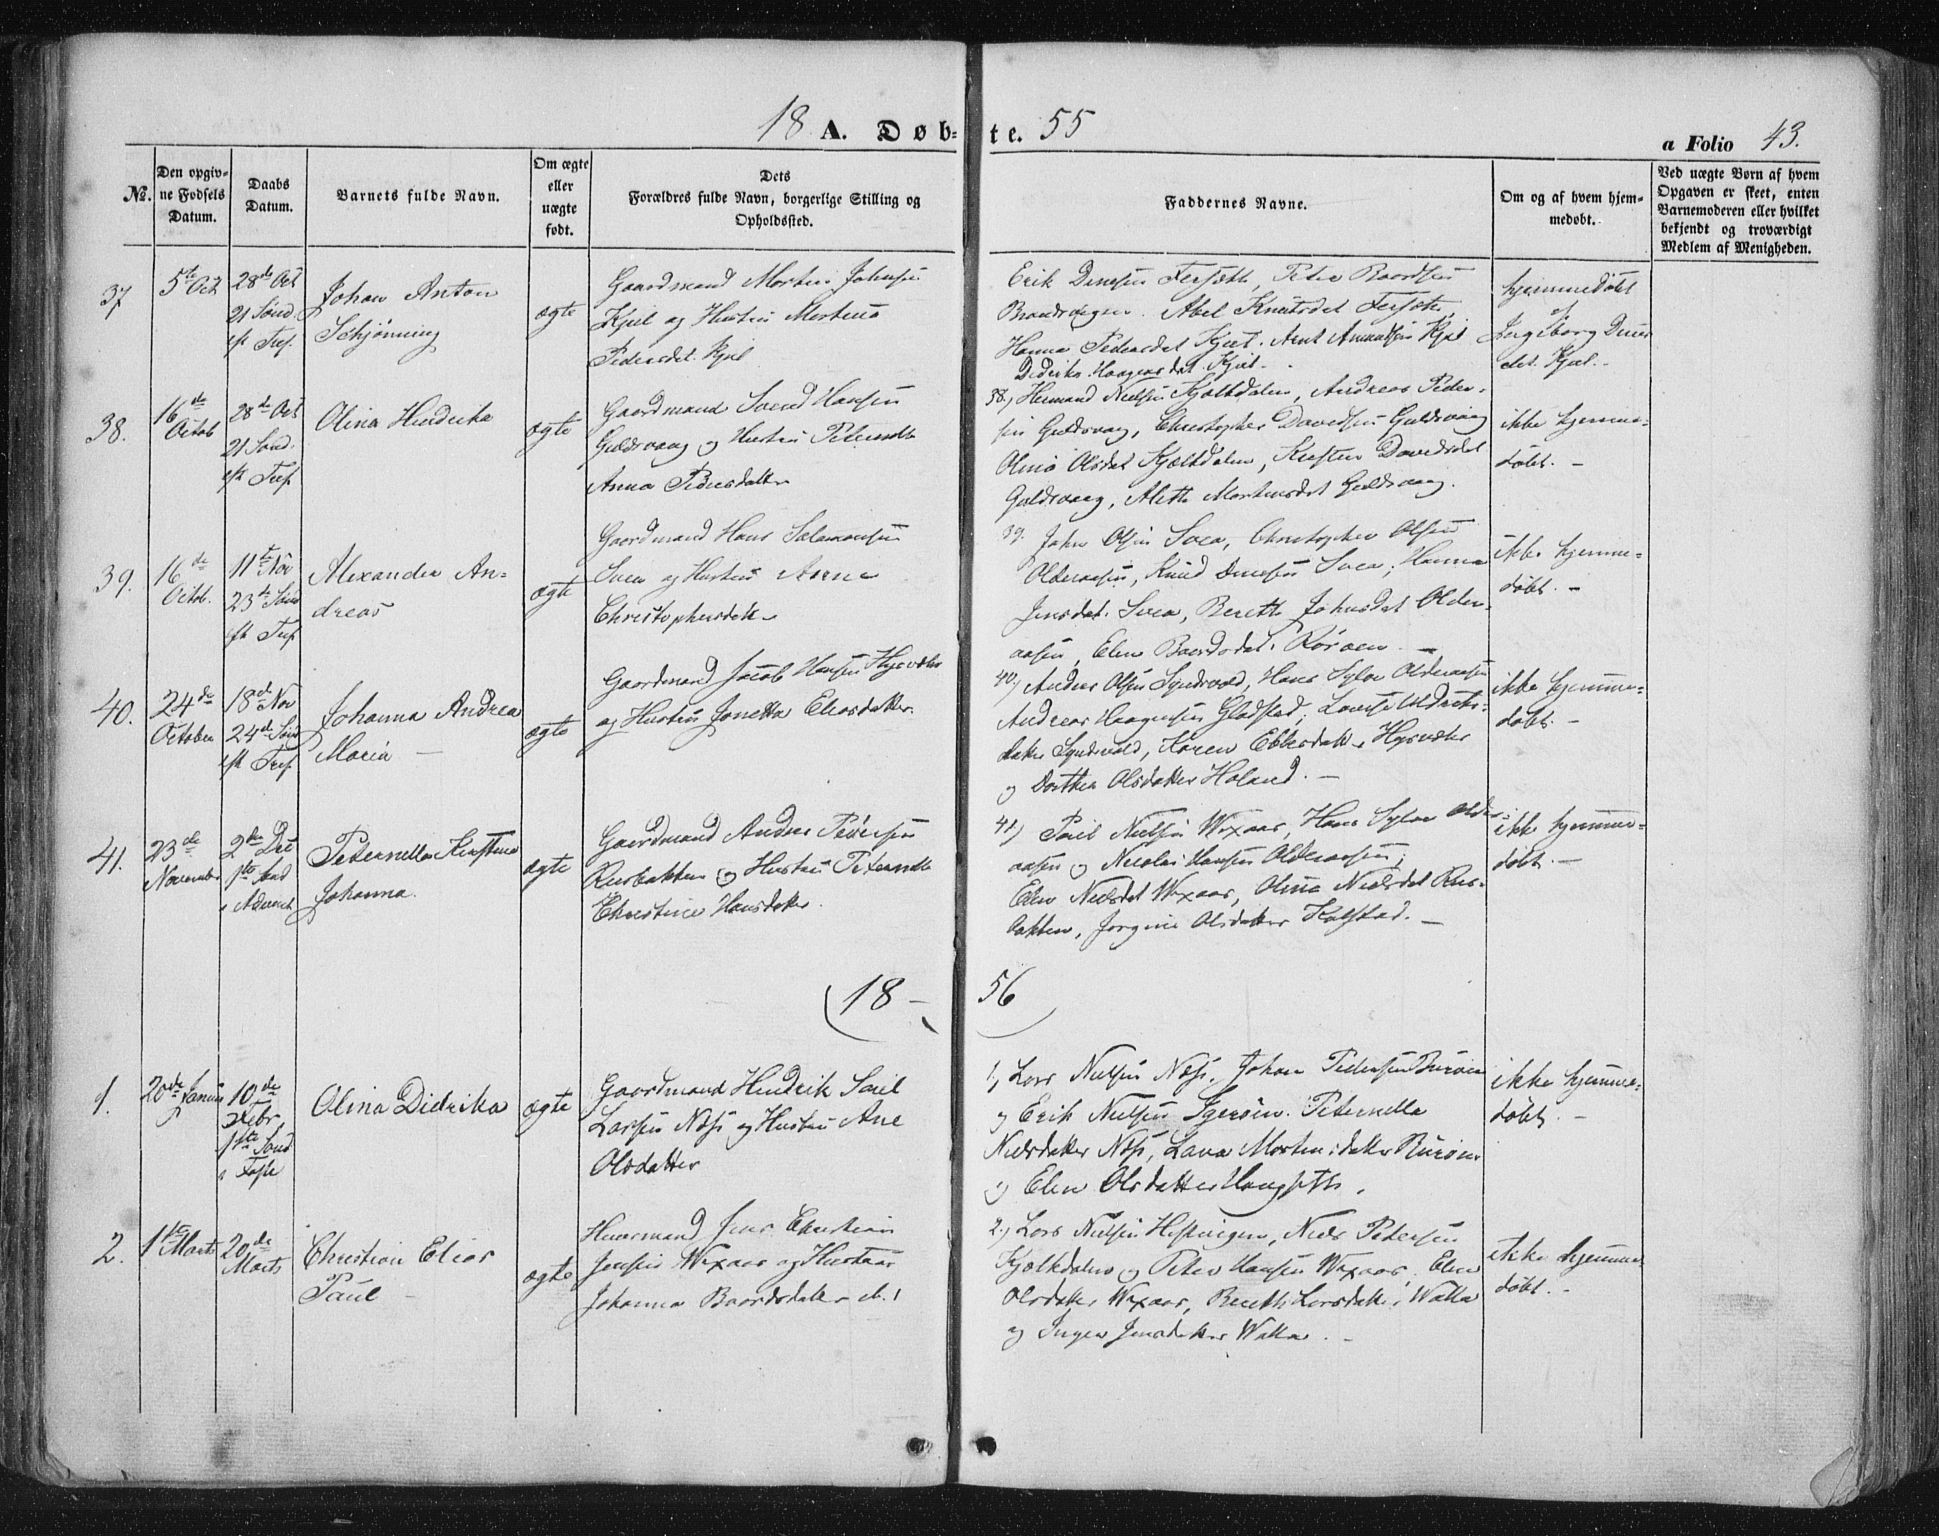 18 A. Døb- te. 55
a Folio 43.
No.
Den opgiv-
ne Fødsels
Datum.
Daabs
Datum.
Barnets fulde Navn.
Om ægte
eller
uægte
født.
Dets
Forældres fulde Navn, borgerlige Stilling og
Opholdssted.
Faddernes Navne.
Om og af hvem hjem-
medøbt.
Ved uægte Børn af hvem
Opgaven er skeet, enten
Barnemoderen eller hvilket
bekjendt og troværdigt
Medlem af Menigheden.
37
5te Oct
28de Oct
21 Sönd.
eft Tref.
Johan Anton
Schjönning
ægte
Gaardmand Morten Johnsen
Kjel og Hustru
Pedersdat. Kjel
Erik Peter Baardsen
Abel Knutsdat
Hanna Pedersdat Kjel. Arnt Kjel
Haagensdat. Kjel
hjemmedöbt
af
Ingeborg
dat. Kjel.
38.
16de
Octob
28de Oct
21 Sönd.
eft Tref
Olina Hendrika
ægte
Gaardmand Svend Hansen
Guldsvaag og Hustru Peternelle
Anna Pedersdatter
38.) Hermand Nielsen Kjeldalen, Andreas Peder-
sen Guldsvaag, Christopher Davidsen Guldsvaag
Olina Olsdat Kjeldalen, Kirsten Davidsdat
Guldsvaag, Aleth Mortensdat Guldsvaag.
ikke hjemme-
döbt. -
39.
16de
Octob.
11te Nov
23de Sönd
eft Tref
Alexander An-
dreas
ægte
Gaardmand Hans Salamonsen
Svea og Hustru Anne
Christophersdatter
39. John Olsen Svea, Christopher Olsen
Olderaasen, Knud Svea, Hanna
Jensdat. Svea, Bereth Johnsdat Older-
aasen, Elen Baardsdat.
ikke hjemme-
döbt. -
40.
24de
October
18de Nov
24de Sönd
eft Tref
Johanna Andrea
Maria -
ægte
Gaardmand Jacob Hansen
og Hustru Jonetta Eliasdatter.
40.) Andreas Olsen Hans Sylve Olderaasen
Andreas Haagensen Gladstad,
datter Karen Ebbesdatter
og Dorthea Olsdatter Holand. -
ikke hjemme-
döbt. -
41.
23de
November
2den Dec
1ste Sönd
i Advent
Peternella Kirstina
Johanna.
ægte
Gaardmand Andreas Pedersen
Rusbakken og Hustru Peternelle
Christine Hansdatter.
41.) Poul Nielsen Wixaas, Hans Sylve Older-
aasen og Nicolai Hansen Olderaasen;
Elen Nielsdat Wixaas, Olina Nielsdat Rus-
bakken, Jorgine Olsdatter Kolstad. -
ikke hjemme-
döbt. -
18 - 56
1.
20de Januar
10de
Febr
1ste Sönd
i Faste
Olina Didrika
ægte
Gaardmand Hendrik
Larsen Næss og Hustru Ane
Olsdatter
1.) Lars Nielsen Næss, Johan Pedersen Buröen
og Erik Nielsen Peternella
Nielsdatter Næss, Lava Mortensdatter Buröen
og Elen Olsdatter
ikke hjemme-
döbt. -
2.
1ste Marts
20de
Marts
Christian Elias
Paul -
ægte
Huusmand Jens Christian
Jensen Wixaas og Hustrue
Johanna Baardsdatter
2.) Lars Nielsen Niels Pedersen
Kjeldalen og Peter Hansen Wixaas. Elen
Olsdatter Wixaas, Bereth Larsdatter Watta
og Inger Jensdatter Watta. -
ikke hjemme
döbt. -